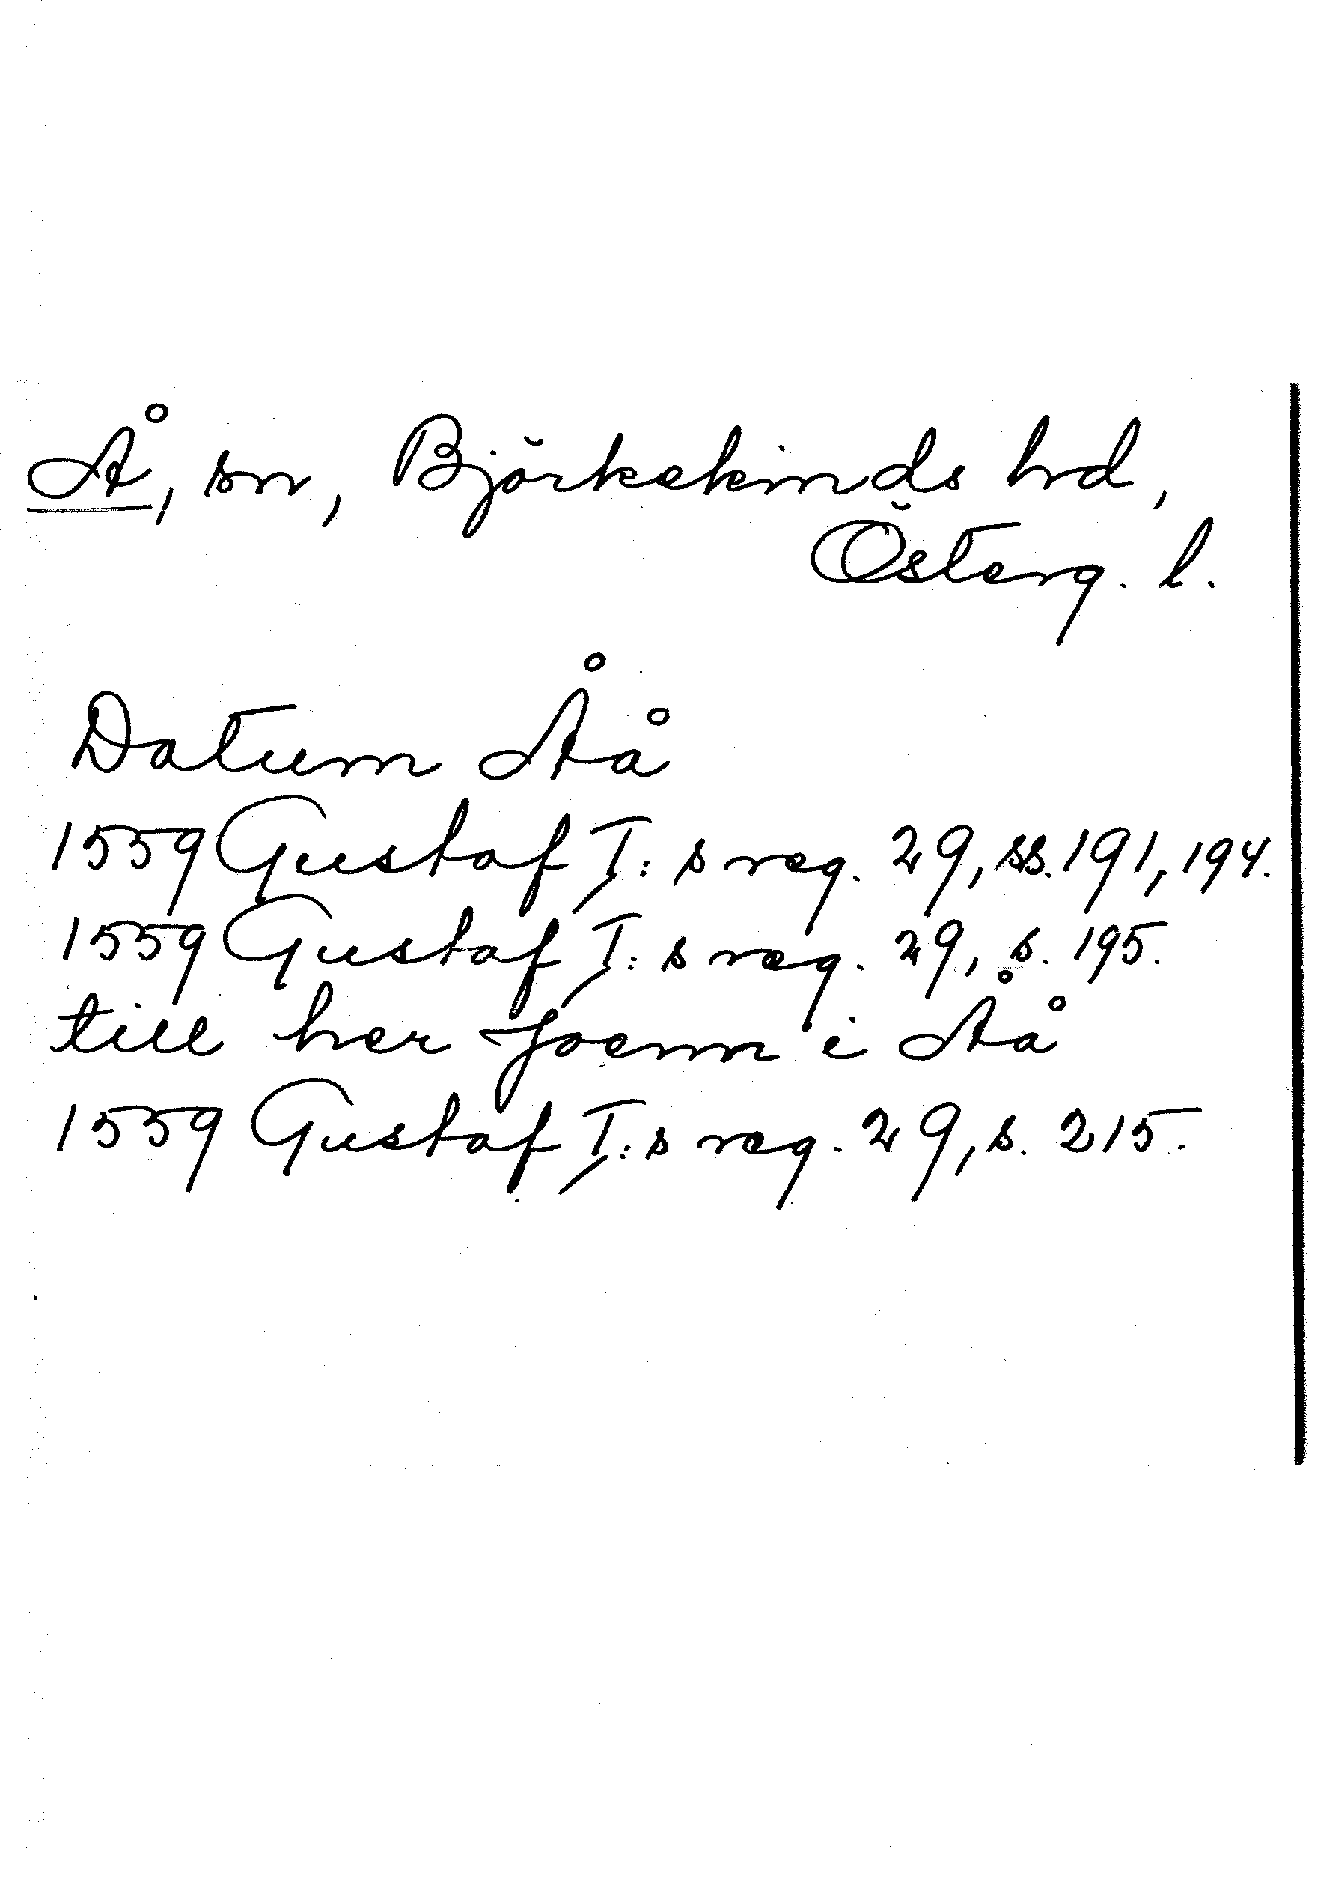 Å, sn, Björkekinds hrd,
Österg. l.
Datum Åå
1559 Gustaf I:s reg. 29, ss. 191, 194.
1559 Gustaf I:s reg. 29, s. 195.
till her Joenn i Åå
1559 Gustaf I:s reg. 29, s. 215.